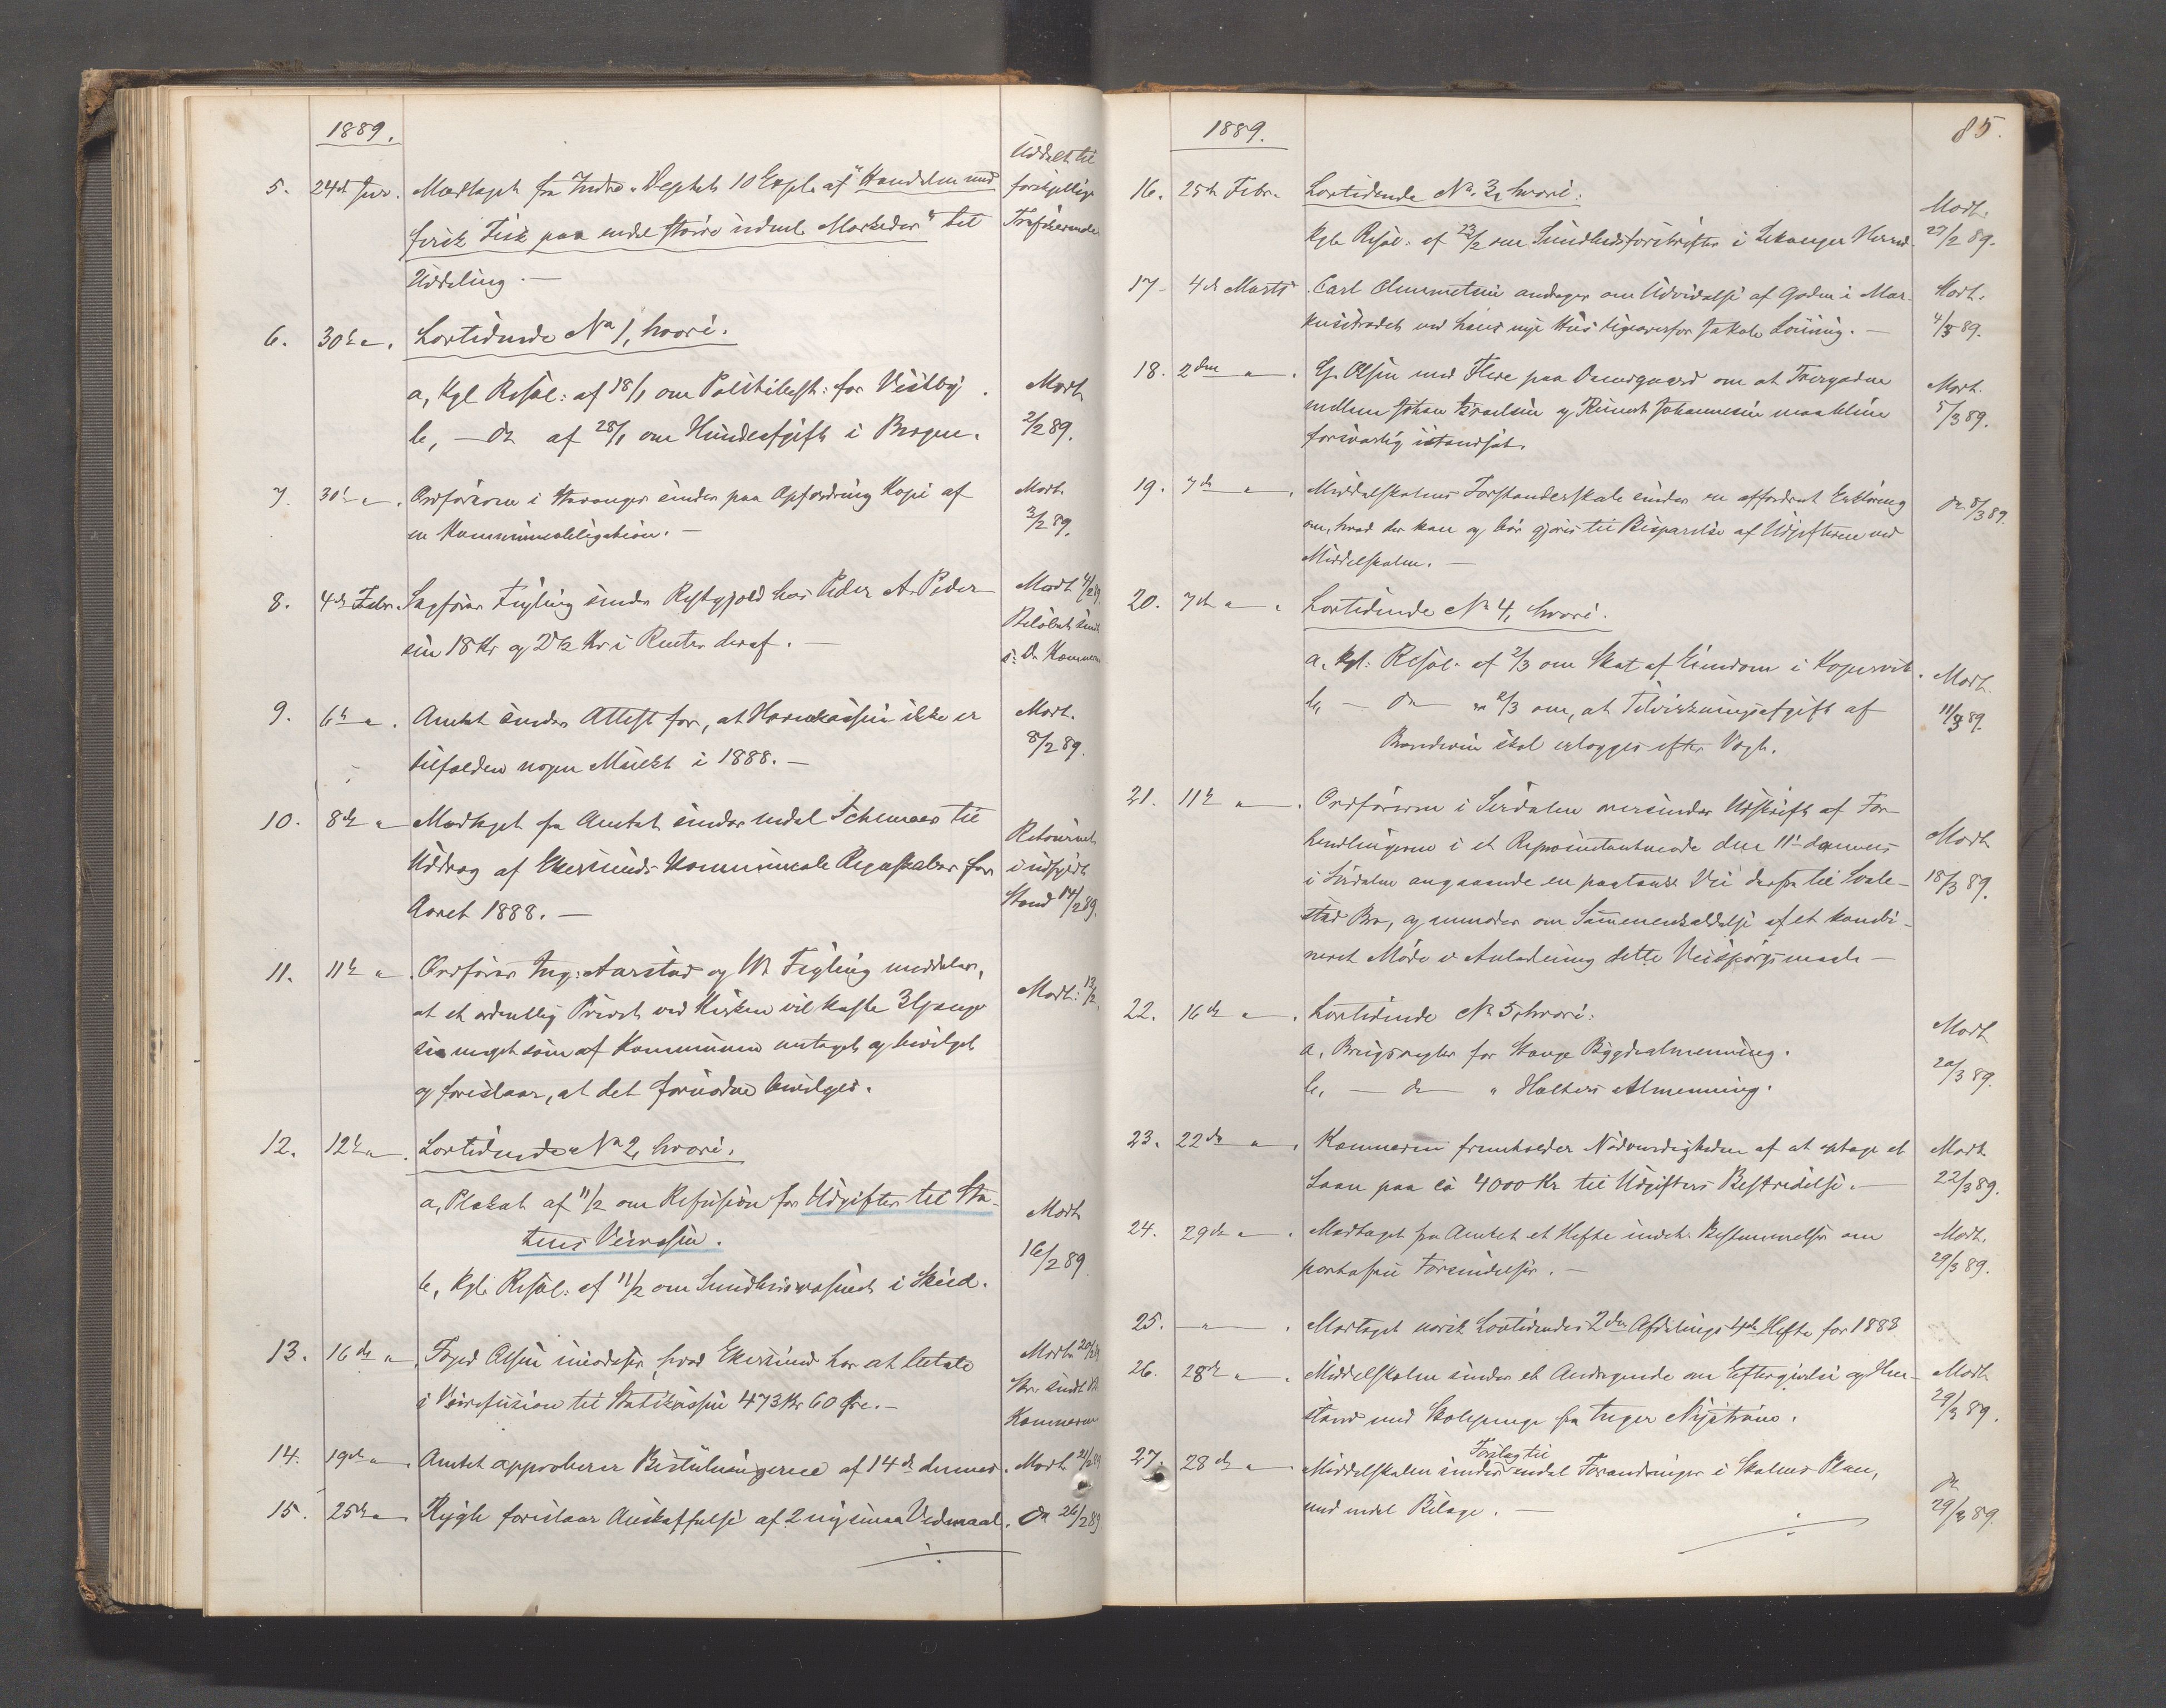 1889.
Uddelt til
5. 24de Jan. Modtaget fra Indre-Deptet 10 Expl. af "Handelen med forskjellige
fersk Fisk paa endel større udenl. Markeder" til
Uddeling. —
6. 30te " . Lovtidende No 1, hvori:
a, Kgl. Resol: af 18/1 om Politibest: for Vestby. Modt.
b, — do af 28/1 om Hundeafgift i Bergen. 2/2 89.
7. 30te " . Ordføreren i Stavanger sender paa Opfordring Kopi af Modt.
en Kommuneobligation. — 3/2 89.
8. 4de Febr. Sagfører Feyling sender Restgjæld hos Peder A. Peder- Modt 4/2 89.
sen 18 Kr og Kr i Renter deraf. — Beløbet sendt
Kæmner
9. 6te " . Amtet sender Attest for, at Havnekassen ikke er Modt.
tilfalden nogen Mulkt i 1888. — 8/2 89.
10. 8de " Modtaget fra Amtet sender endel Schemaer til Retourneret
Uddrag af Ekersunds kommunale Regnskaber for i udfyldt
Aaret 1888. — Stand 14/2 89.
11. 11te " . Ordfører Ing: Aarstad og W. Feyling meddeler,
at et ordentlig Privet ved Kirken vil koste 3 Gange Modt: 12/2
saa meget som af Kommunen antaget og bevilget
og foreslaar, at det fornødne bevilges.
12. 12te " . Lovtidende No 2, hvori:
a, Plakat af 11/2 om Refusion for Udgifter til Sta- Modt
tens Veivæsen. 16/2 89
b, Kgl. Resol: af 11/2 om Sundhedsvæsenet i Skied.
13. 16de " . Foged Olsen hvad Ekersund har at betale Modt. 20/2 89
i Veirefusion til Statskassen 473 Kr 60 Øre. — sendt
Kæmneren
14. 19de " . Amtet approberer Beslutningerne af 14de dennes. Modt. 21/2 89
15. 25de " Rygh foreslaar Anskaffelse af 2 nye smaa Vedmaal. do 26/2 89
1889. 85.
16. 25de Febr. Lovtidende No. 3, hvori: Modt.
Kgl. Resol: af 23/2 om Sundhedsforskrifter i Lekanger Herred. 27/2 89.
17. 4de Marts. Carl Clemmetsen andrager om Udvidelse af Gaden i Mar- Modt.
kusstrædet ved hans nye Hus ligeoverfor Jakob Løining. — 4/3 89.
18. 2den " . G. Olsen med Flere paa Damsgaard om at Tvergaden Modt.
mellem Johan Israelsen og Reinert Johannesen maa blive 5/3 89.
forsvarlig istandsat.
19. 7de " . Middelskolens Forstanderskab sender en affordret Erklæring do 8/3 89.
om, hvad der kan og bør gjøres til Besparelse af Udgifterne ved
Middelskolen. —
20. 7de " . Lovtidende No 4, hvori:
a. Kgl: Resol. af 2/3 om Skat af Eiendom i Kopervik. Modt.
b, — do — " 2/3 om, at Tilvirkningsafgift af 11/3 89.
Brændevin skal erlægges efter Vægt.
21. 11te " . Ordføreren i Sirdalen oversender Udskrift af For-
handlingerne i et Repræsentantmøde den 11te dennes Modt
i Sirdalen angaaende en paatænkt Vei derfra til Svale- 18/3 89.
stad Bro, og anmoder om Sammenkaldelse af et kombi-
neret Møde i Anledning dette Veispørgsmaal —
22. 16de " . Lovtidende No 5, hvori: Modt
a, Brugsregler for Stange Bygdealmenning. 20/3 89.
b, — do — " Holters Almenning.
23. 22de " . Kæmneren fremholder Nødvendigheden af at optage et Modt.
Laan paa ca 4000 Kr til Udgifters Bestridelse. — 22/3 89.
24. 29de " . Modtaget fra Amtet et Hefte indeh. Bestemmelser om Modt.
portofrie Forsendelser. — 29/3 89.
25. — " . Modtaget norsk Lovtidendes 2den Afdelings 4de Hefte for 1888
26. 28de " . Middelskolen sender et Andragende om Eftergivelse og Hen- Modt.
stand med Skolepenge fra Inger Nystrøm. 29/3 89.
27. 28de " Middelskolen sender Forslag til endel Forandringer i Skolens Plan, do
med endel Bilage. — 29/3 89.